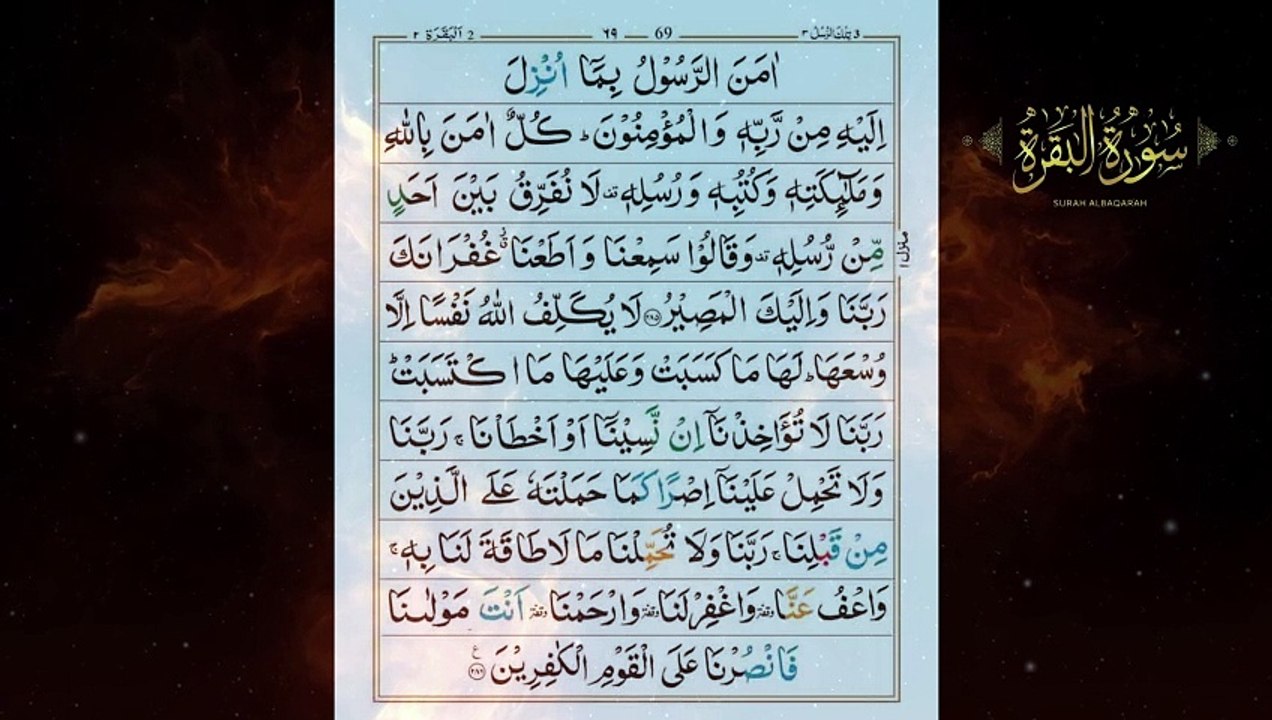 3 تِلْكَ الرُّسُلُ ٣
69 — ٦٩
2 اَلْبَقَرَة ٢
اٰمَنَ الرَّسُوْلُ بِمَاۤ اُنْزِلَ
اِلَيْهِ مِنْ رَّبِّهٖ وَالْمُؤْمِنُوْنَ ؕ كُلٌّ اٰمَنَ بِاللّٰهِ
وَمَلٰٓئِكَتِهٖ وَكُتُبِهٖ وَرُسُلِهٖ قف لَا نُفَرِّقُ بَيْنَ اَحَدٍ
مِّنْ رُّسُلِهٖ قف وَقَالُوْا سَمِعْنَا وَاَطَعْنَا ؗۗ غُفْرَانَكَ
رَبَّنَا وَاِلَيْكَ الْمَصِيْرُ ۝۲۸۵ لَا يُكَلِّفُ اللّٰهُ نَفْسًا اِلَّا
وُسْعَهَا ؕ لَهَا مَا كَسَبَتْ وَعَلَيْهَا مَا اكْتَسَبَتْ ؕ
رَبَّنَا لَا تُؤَاخِذْنَاۤ اِنْ نَّسِيْنَاۤ اَوْ اَخْطَاْنَا ۚ رَبَّنَا
وَلَا تَحْمِلْ عَلَيْنَاۤ اِصْرًا كَمَا حَمَلْتَهٗ عَلَى الَّذِيْنَ
مِنْ قَبْلِنَا ۚ رَبَّنَا وَلَا تُحَمِّلْنَا مَا لَا طَاقَةَ لَنَا بِهٖ ۚ
وَاعْفُ عَنَّا وقفة وَاغْفِرْ لَنَا وقفة وَارْحَمْنَا وقفة اَنْتَ مَوْلٰىنَا
فَانْصُرْنَا عَلَى الْقَوْمِ الْكٰفِرِيْنَ ۝۲۸۶ ع
منزل ۱
سُورَةُ الْبَقَرَةُ
SURAH ALBAQARAH